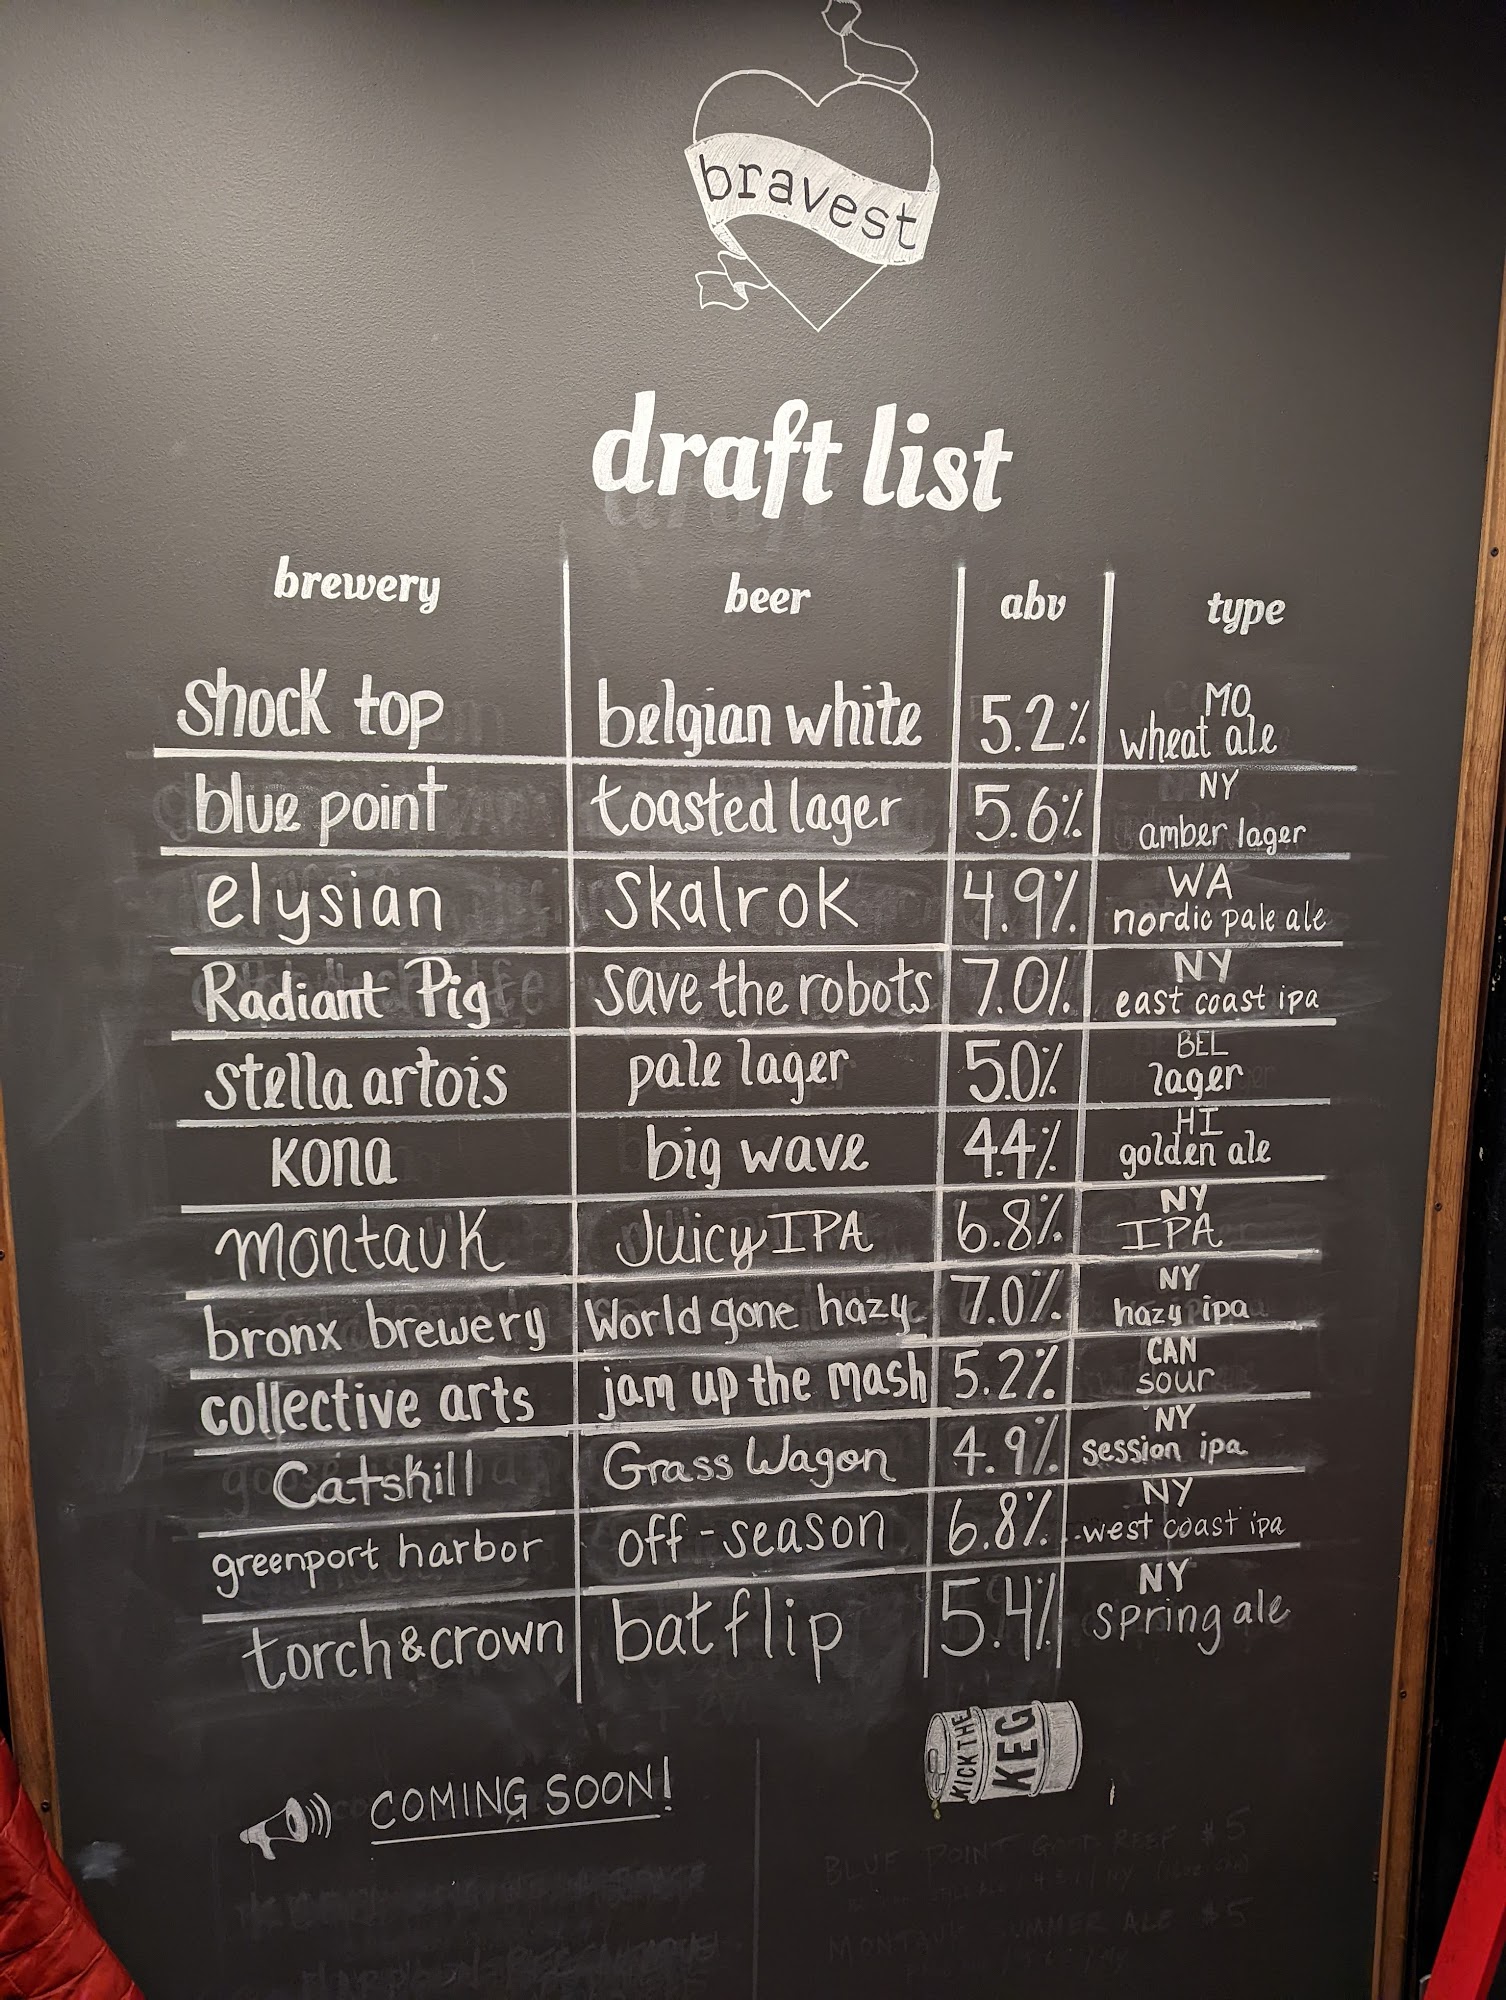 bravest
draft list
brewery beer abv type
shock top belgian white 5.2% MO wheat ale
blue point toasted lager 5.6% NY amber lager
elysian skalrok 4.9% WA nordic pale ale
Radiant Pig save the robots 7.0% NY east coast ipa
stella artois pale lager 5.0% BEL lager
kona big wave 4.4% HI golden ale
montauk Juicy IPA 6.8% NY IPA
bronx brewery World gone hazy 7.0% NY hazy ipa
collective arts jam up the mash 5.2% CAN sour
Catskill Grass Wagon 4.9% NY session ipa
greenport harbor off-season 6.8% NY west coast ipa
torch & crown bat flip 5.4% NY spring ale
KICK THE KEG
COMING SOON!
BLUE POINT REEF $5
MONTAUK SUMMER ALE $5